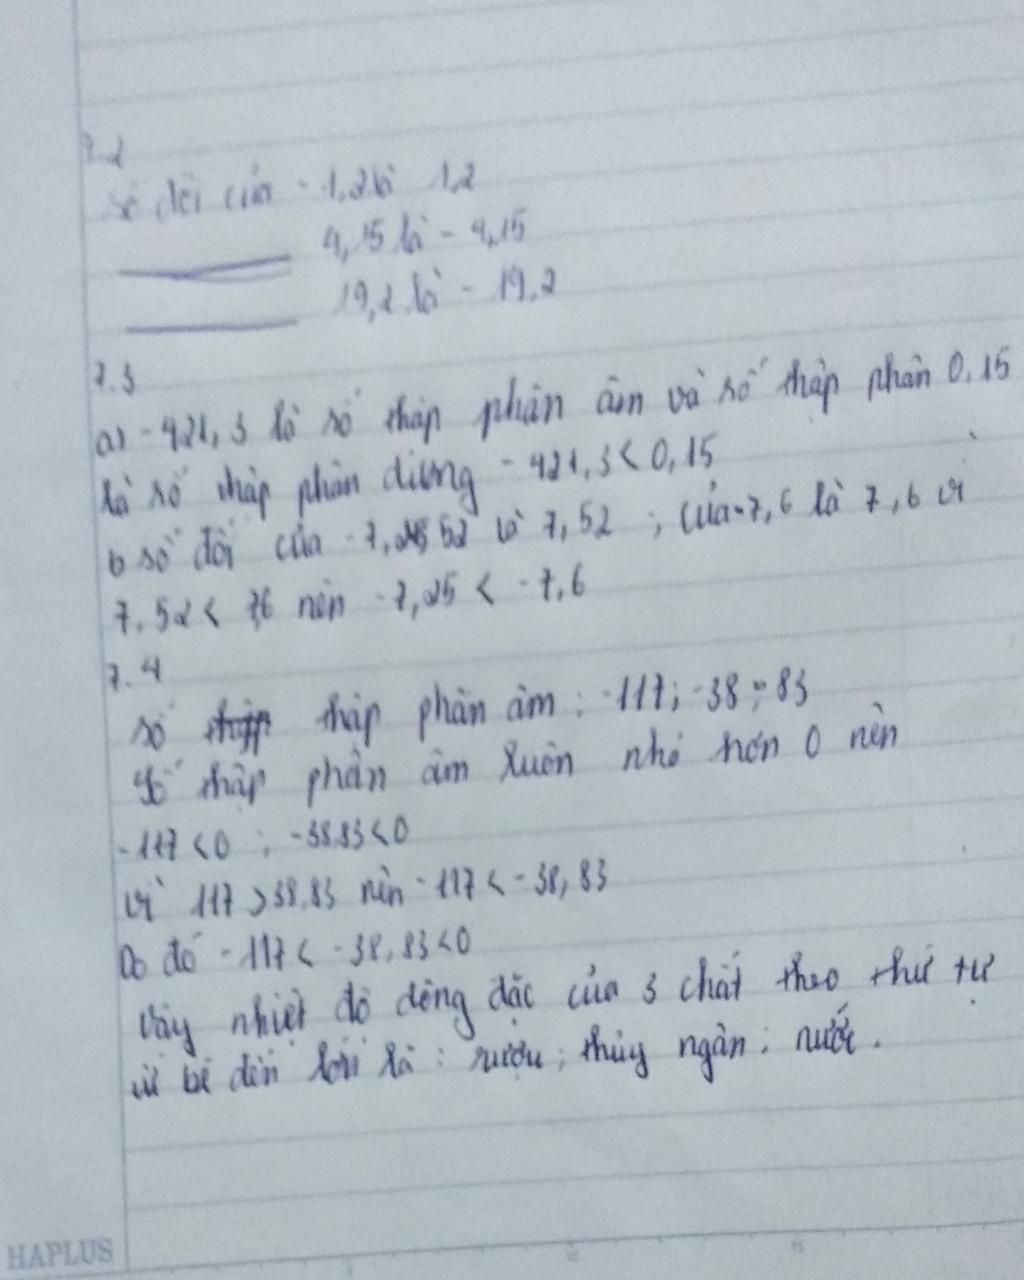 7.2
số đối của - 1,2 là 1,2
4,15 là - 4,15
19,2 là - 19,2
7.3
a) - 421,3 là số thập phân âm và số thập phân 0,15
là số thập phân dương - 421,3 < 0,15
b số đối của - 7,52 là 7,52 ; của - 7,6 là 7,6 vì
7,52 < 7,6 nên - 7,25 < - 7,6
7.4
số thập phân âm : - 117 ; - 38,83
Số thập phân âm luôn nhỏ hơn 0 nên
- 117 < 0 ; - 38,83 < 0
vì 117 > 38,83 nên - 117 < - 38,83
Do đó - 117 < - 38,83 < 0
Vậy nhiệt độ đông đặc của 3 chất theo thứ tự
từ bé đến lớn là : rượu ; thủy ngân ; nước .
HAPLUS
5
10
15